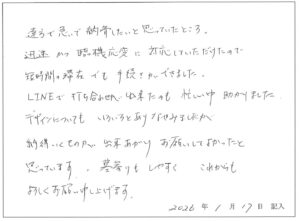 遠方で急いで納骨したいと思っていたところ、
迅速かつ臨機応変に対応していただけたので
短時間の滞在でも手続きができました。
LINEで打ち合わせが出来たのも忙しい中助かりました
デザインについてもいろいろとありなやみましたが
納得いくものが出来あがりお願いしてよかったと
思っています。墓参りもしやすく これからも
よろしくお願い申し上げます。
2026年1月17日 記入